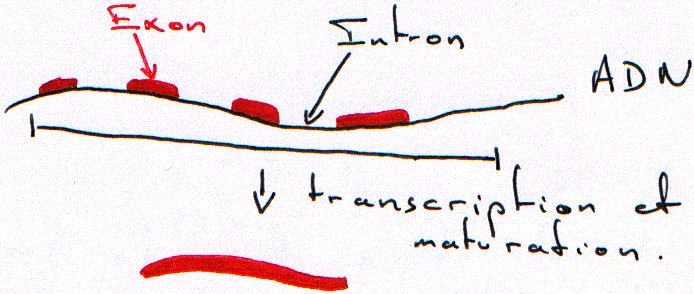 Exon
Intron
ADN
transcription et
maturation.